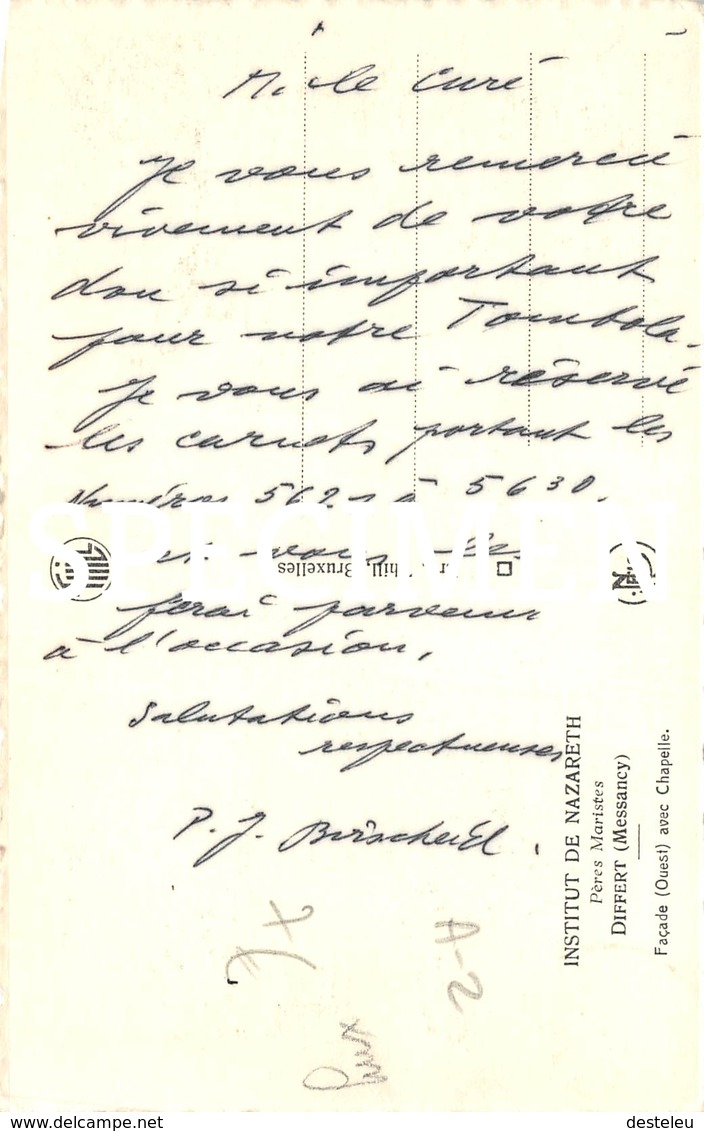 M. le Curé
Je vous remercie
vivement de votre
don si important
pour notre Tombola.
Je vous ai réservé
les carnets portant les
Numéros 562 à 5630.
vous les
ferai parvenir
à l'occasion.
Salutations
respectueuses
P. J.
INSTITUT DE NAZARETH
Pères Maristes
DIFFERT (Messancy)
Façade (Ouest) avec Chapelle.
hill, Bruxelles
A-2
SPECIMEN
delcampe.net
desteleu